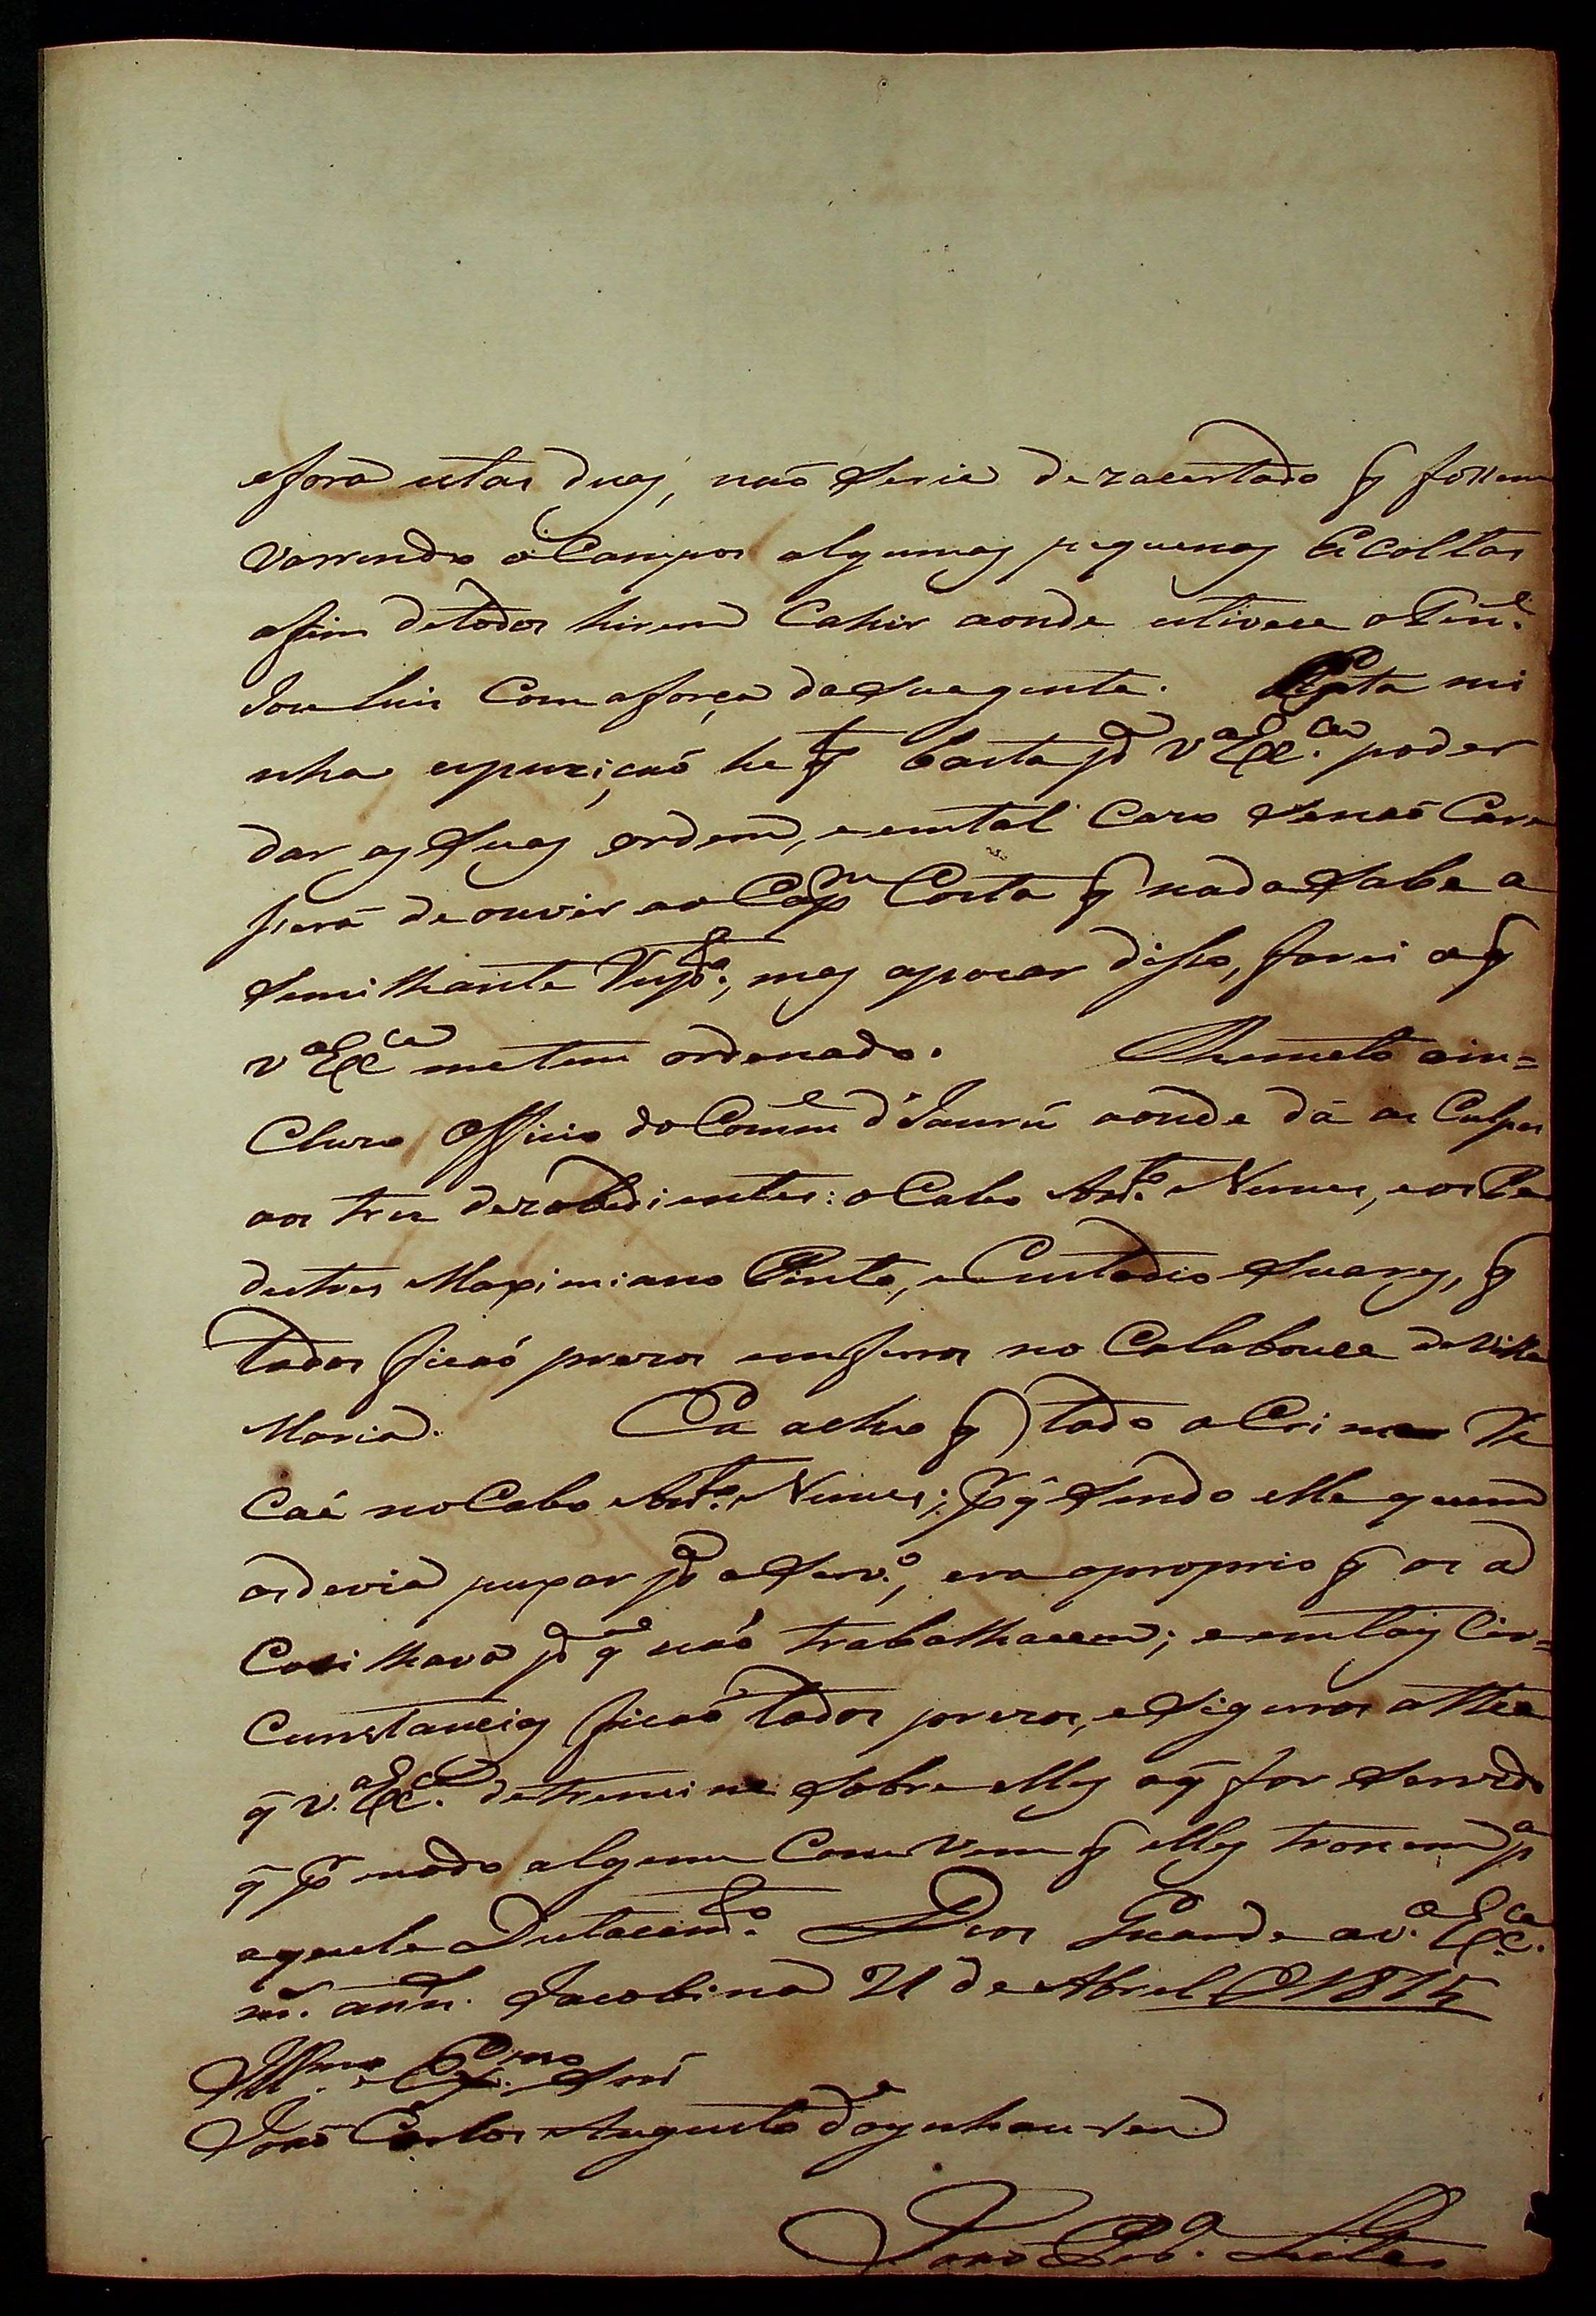 e fora estas duas, naõ seria dezacertado q̃ fossem
varrendo os Campos algumas pequenas Escoltas
afim de todos hirem Cahir aonde estivece o Ten.e
Joze Luis Com aforça da sua gente. Esta mi
nha espuziçaõ he q̃ basta p.a V.a Ex.ca poder
dar as suas ordens, e em tal Cazo senaõ Care
será de ouvir ao Cap.m Costa q̃ nada sabe a
semilhante resp.to, mas apezar disso, farei o q̃
V.a Ex.ca me tem ordenado. Remeto oin=
Cluzo Officio do Comm.e d'Jaurú aonde dá as Culpas
aos tres dezobedientes: o Cabo Ant.o Nunes, e os Pe
destres Maximiano Pinto, e Custodio Soares, q̃
todos ficaõ prezos em ferros no Calabouce de Villa
Maria. Eu acho q̃ todo o Crime re
Caé no Cabo Ant.o Nunes; p.r q̃ sendo elle quem
os devia puxar p.a o serv.o, era o proprio q̃ os a
Consilhava p.a q̃ naõ trabalhacem; e em tais Cir=
Cunstancias ficaõ todos prezos, e siguros athe
q̃ V.a Ex.ca detremine sobre elles o q̃ for servido
q̃ p.r modo algum Comvem q̃ elles tronem p.a
aquele Destacam.to Deos Guarde a V.a Ex.ca
m.s ann.s Jacobina 21 de Abril d'1815
Ill.mo e Ex.mo Snr.
Joaõ Carlos Augusto d'Oeynhausen
Joaõ Per.a Leite